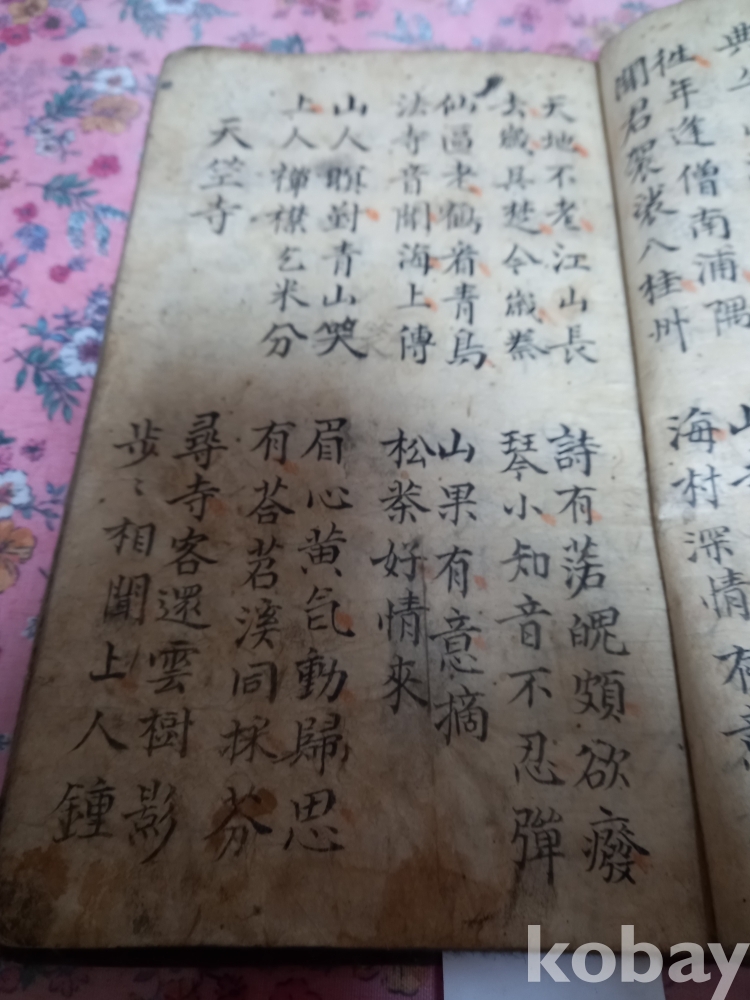 典
徃年逢僧南浦隅
聞君袈裟八桂州
海村深情有意
天地不老江山長
去歲具楚今歲蔡
仙區老鶴看青鳥
法寺音聞海上傳
山人暝對青山笑
上人禅榻乞米分
天竺寺
詩有落魄頗欲廢
琴小知音不忍彈
山果有意摘
松茶好情來
眉心黄氣動歸思
有荅苕溪同採芬
尋寺客還雲樹影
步〻相聞上人鍾
kobay